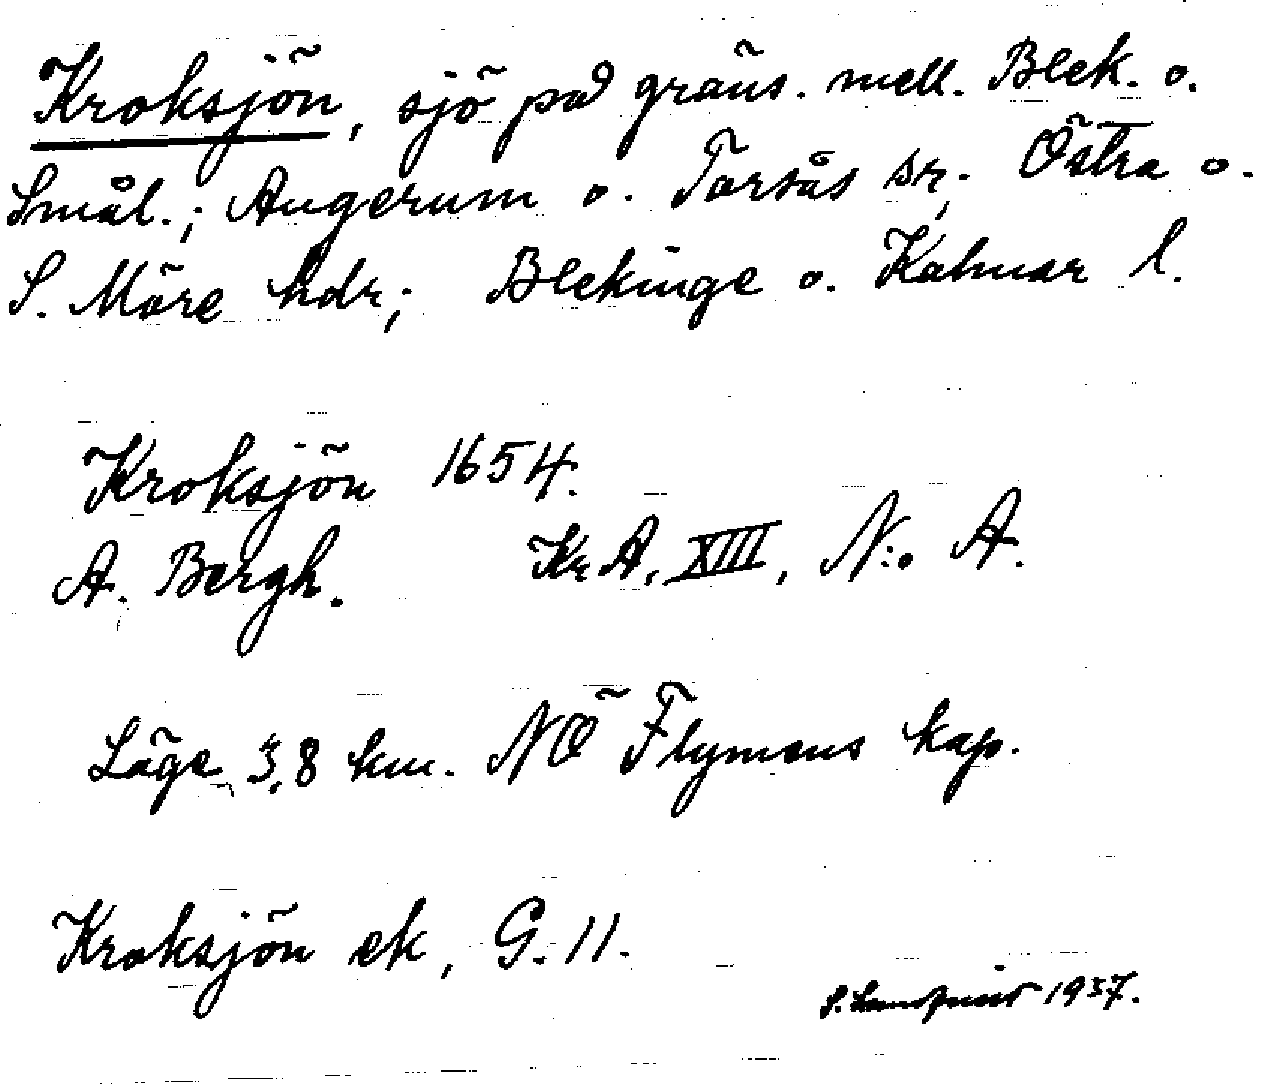 Kroksjön, sjö på gräns. mell. Blek. o.
Smål.; Augerum o. Torsås sr, Östra o.
S. Möre hdr; Blekinge o. Kalmar l.
Kroksjön 1654.
A. Bergh. Kr A, XIII, N:o A.
Läge 3,8 km. NÖ Flymens kap.
Kroksjön ek, G. 11.
S. 1937.